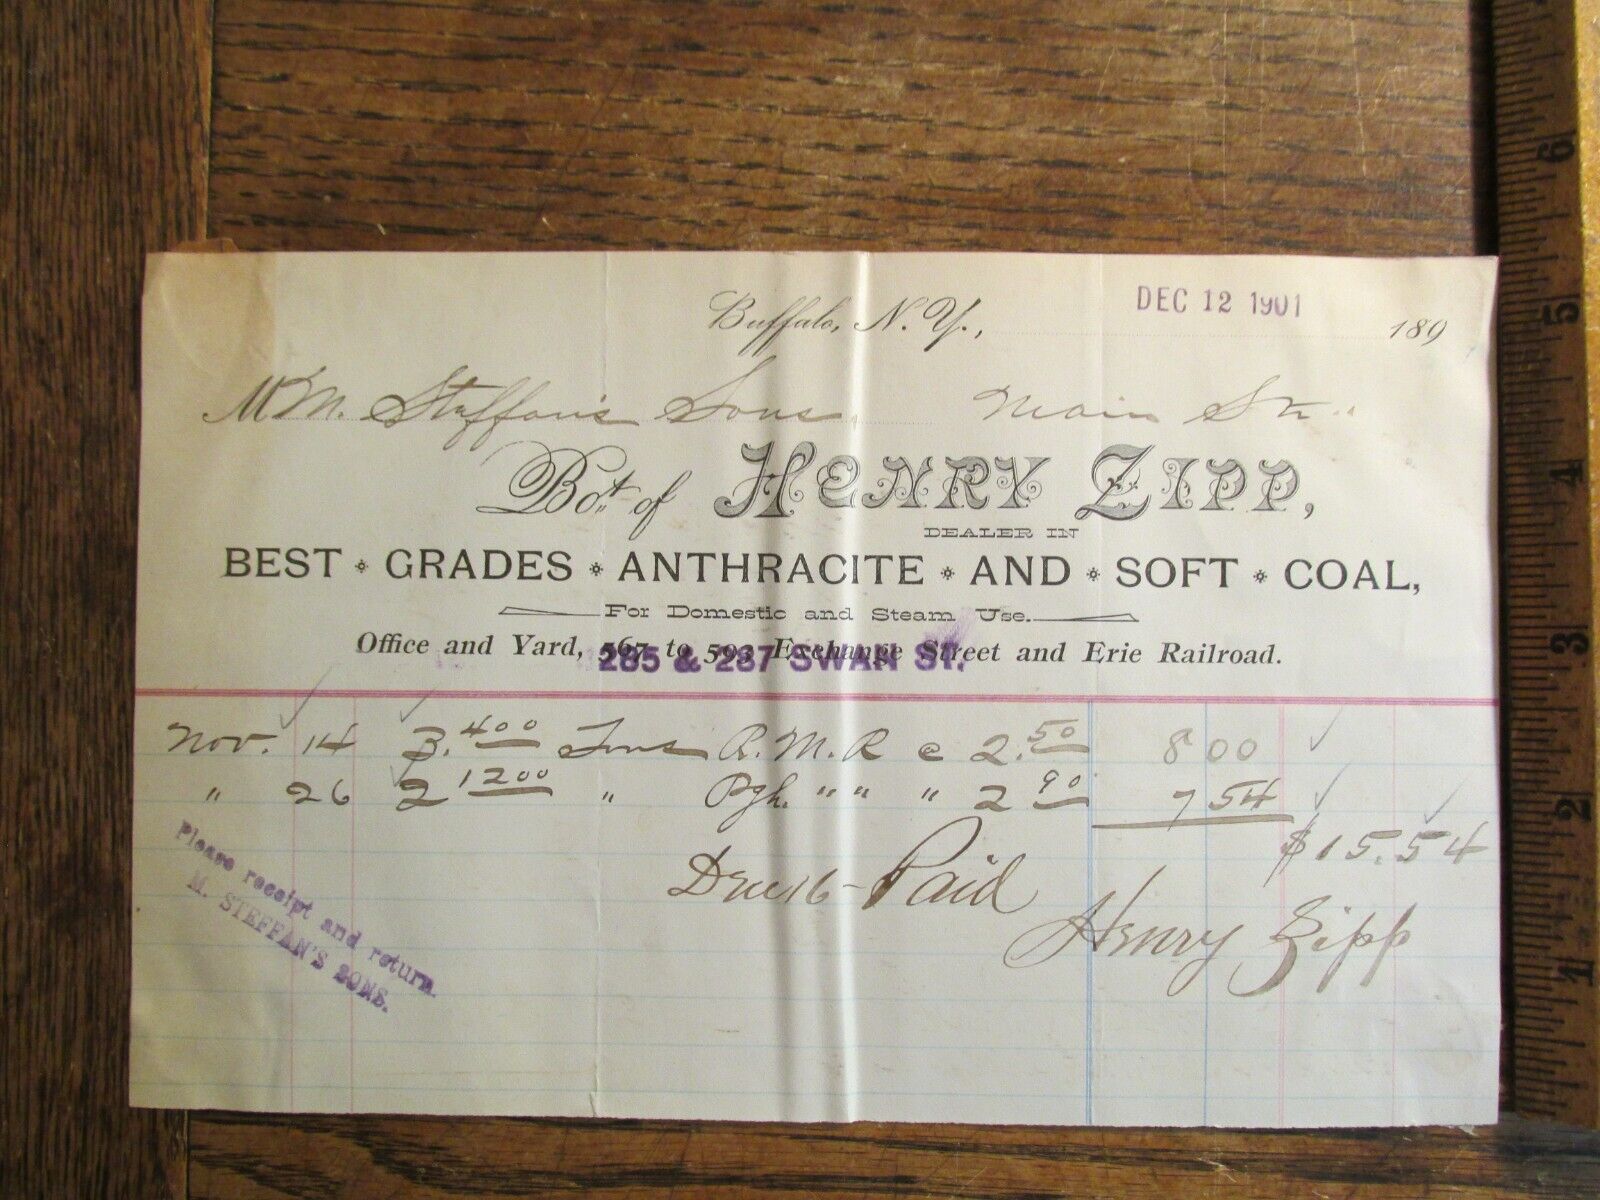 DEC 12 1901
Buffalo, N. Y., 189
M. Steffan's Sons Main St.
Bot. of HENRY ZIPP,
DEALER IN
BEST GRADES ANTHRACITE AND SOFT COAL,
For Domestic and Steam Use.
Office and Yard, 567 to 593 Exchange Street and Erie Railroad.
285 & 287 SWAN ST.
Nov. 14 3.400 Tons R. M. R @ 2.50 8 00
" 26 2 1200 " Pgh. " " " 2 90 7 54
$15.54
Dec 16 - Paid
Henry Zipp
Please receipt and return.
M. STEFFAN'S SONS.
1
2
3
4
5
6